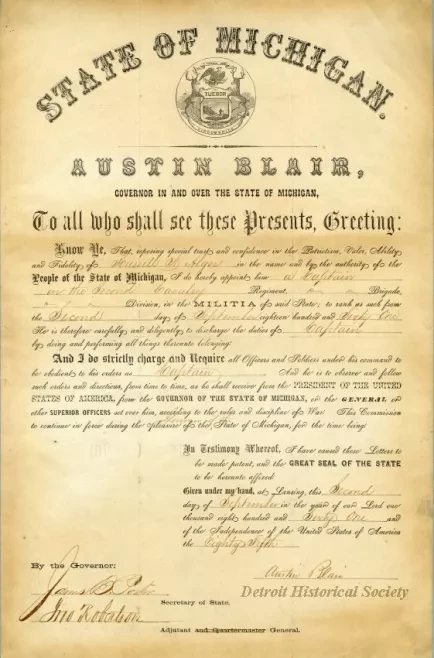 STATE OF MICHIGAN.
TUEBOR
AUSTIN BLAIR,
GOVERNOR IN AND OVER THE STATE OF MICHIGAN,
To all who shall see these Presents, Greeting:
Know Ye, That, reposing special trust and confidence in the Patriotism, Valor, Ability
and Fidelity, of Russell A. Alger in the name and by the authority, of the
People of the State of Michigan, I do hereby appoint him a Captain
in the Second Cavalry Regiment, Brigade,
Division, in the MILITIA of said State; to rank as such from
the Second day of September eighteen hundred and Sixty One
He is therefore carefully and diligently, to discharge the duties of Captain
by doing and performing all things thereunto belonging:
And I do strictly charge and Require all Officers and Soldiers under his command to
be obedient to his orders as Captain And he is to observe and follow
such orders and directions, from time to time, as he shall receive from the PRESIDENT OF THE UNITED
STATES OF AMERICA, from the GOVERNOR OF THE STATE OF MICHIGAN, or the GENERAL or
other SUPERIOR OFFICERS set over him, according to the rules and discipline of War. This Commission
to continue in force during the pleasure of the State of Michigan, for the time being.
In Testimony Whereof, I have caused these Letters to
be made patent, and the GREAT SEAL OF THE STATE
to be hereunto affixed
Given under my hand, at Lansing, this Second
day of September in the year of our Lord one
thousand eight hundred and Sixty One and
of the Independence of the United States of America
the Eighty Fifth
By the Governor:
Austin Blair
James B. Porter
Detroit Historical Society
Secretary of State.
Jno Robertson
Adjutant and Quartermaster General.